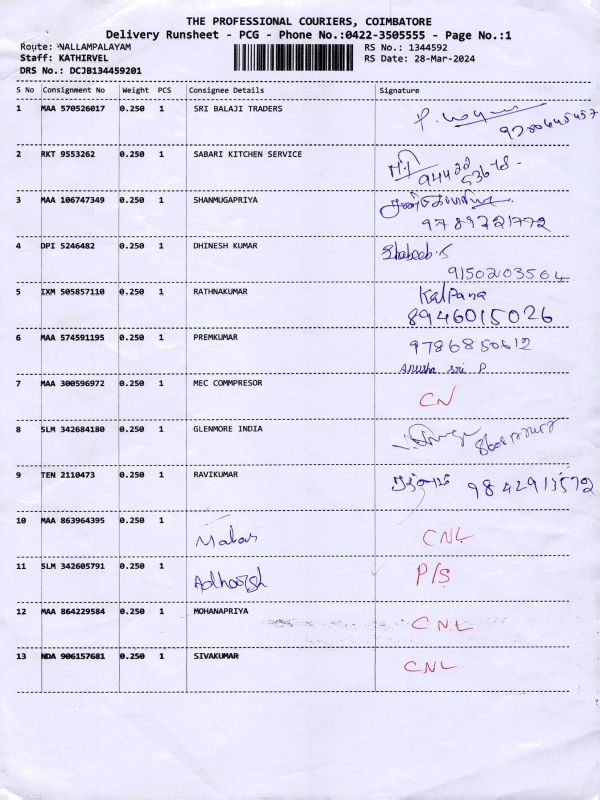 THE PROFESSIONAL COURIERS, COIMBATORE
Delivery Runsheet - PCG - Phone No.:0422-3505555 - Page No.:1
Route: NALLAMPALAYAM RS No.: 1344592
Staff: KATHIRVEL RS Date: 28-Mar-2024
DRS No.: DCJB134459201
S No Consignment No Weight PCS Consignee Details Signature
1 MAA 570526017 0.250 1 SRI BALAJI TRADERS
2 RKT 9553262 0.250 1 SABARI KITCHEN SERVICE
3 MAA 106747349 0.250 1 SHANMUGAPRIYA
9789721772
4 DPI 5246482 0.250 1 DHINESH KUMAR
9150203564
5 IXM 505857110 0.250 1 RATHNAKUMAR Kalpana
8946015026
6 MAA 574591195 0.250 1 PREMKUMAR 9786850612
Anusha sri P
7 MAA 300596972 0.250 1 MEC COMMPRESOR CN
8 SLM 342684180 0.250 1 GLENMORE INDIA
9 TEN 2110473 0.250 1 RAVIKUMAR
10 MAA 863964395 0.250 1 CNL
11 SLM 342605791 0.250 1 P/S
12 MAA 864229584 0.250 1 MOHANAPRIYA CNL
13 NDA 906157681 0.250 1 SIVAKUMAR CNL